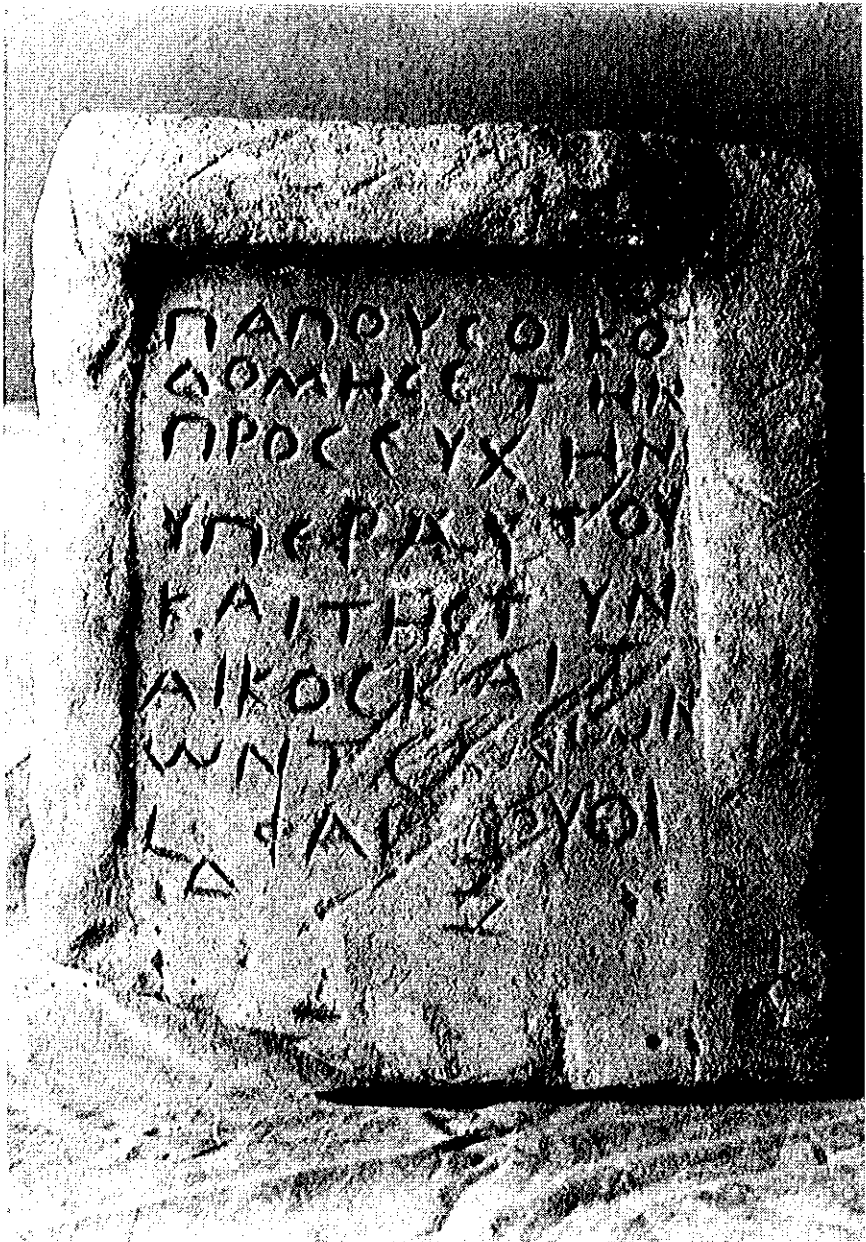 ΠΑΠΟΥϹ ΟΙΚΟ
ΔΟΜΗϹΕ ΤΗΝ
ΠΡΟϹΕΥΧΗΝ
ΥΠΕΡ ΑΥΤΟΥ
ΚΑΙ ΤΗϹ ΓΥΝ
ΑΙΚΟϹ ΚΑΙ Τ
ΩΝ ΤΕΚΝΩΝ
L Δ ΦΑΡΜΟΥΘΙ
Ζ